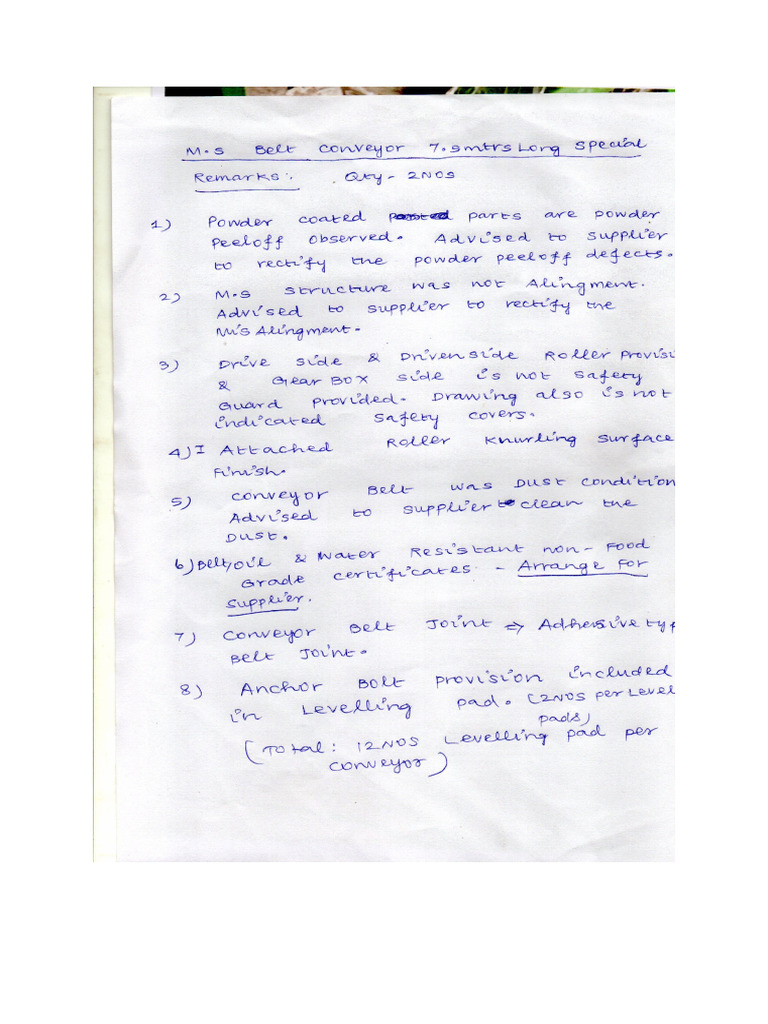 M.S Belt Conveyor 7.5mtrs Long Special
Remarks:. Qty- 2NOS
1) Powder coated parts are powder
Peeloff observed. Advised to Supplier
to rectify the powder peeloff defects.
2) M.S structure was not Alingment.
Advised to supplier to rectify the
MisAlingment.
3) Drive side & Driven side Roller Provisi
& Gear Box side is not Safety
Guard Provided. Drawing also is not
indicated Safety covers.
4) I Attached Roller Knurling Surface
Finish.
5) Conveyor Belt was Dust Condition
Advised to Supplier to clean the
Dust.
6) Belt, oil & Water Resistant non-Food
Grade certificates - Arrange For
Supplier.
7) Conveyor Belt Joint ⇒ Adhesive typ
Belt Joint.
8) Anchor Bolt provision included
in Levelling pad. (2NOS per Level
pads)
(Total: 12NOS Levelling pad per
conveyor)